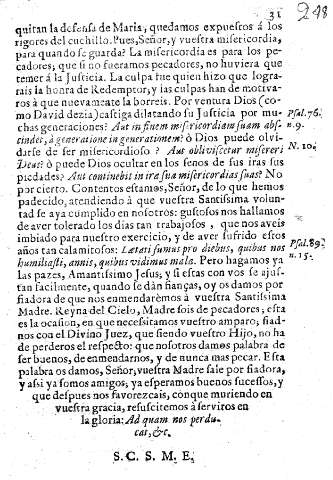 31
248
quitan la defensa de Maria, quedamos expuestos á los
rigores del cuchillo. Pues, Señor, y vuestra misericordia,
para quando se guarda? La misericordia es para los pe-
cadores; que si no fueramos pecadores, no huviera que
temer á la Justicia. La culpa fue quien hizo que logra-
rais la honra de Redemptor; y las culpas han de motiva-
ros à que nuevamente la borreis. Por ventura Dios (co-
mo David dezia) castiga dilatando su Justicia por mu-
chas generaciones? Aut in finem misericordiam suam abs-
cindet, à generatione in generationem? ò Dios puede olvi-
darse de ser misericordioso? Aut obliviscetur misereri
Deus? ò puede Dios ocultar en los senos de sus iras sus
piedades? Aut continebit in ira sua misericordias suas? No
por cierto. Contentos estamos, Señor, de lo que hemos
padecido, atendiendo à que vuestra Santissima volun-
tad se aya cumplido en nosotros: gustosos nos hallamos
de aver tolerado los dias tan trabajosos, que nos aveis
imbiado para nuestro exercicio, y de aver sufrido estos
años tan calamitosos: Lætati sumus pro diebus, quibus nos
humiliasti, annis, quibus vidimus mala. Pero hagamos ya
las pazes, Amantissimo Jesus; y si estas con vos se ajus-
tan facilmente, quando se dàn fianças, oy os damos por
fiadora de que nos enmendarèmos à vuestra Santissima
Madre. Reyna del Cielo, Madre sois de pecadores; esta
es la ocasion, en que necessitamos vuestro amparo; fiad-
nos con el Divino Juez, que siendo vuestro Hijo, no ha
de perderos el respecto: que nosotros damos palabra de
ser buenos, de enmendarnos, y de nunca mas pecar. Esta
palabra os damos, Señor; vuestra Madre sale por fiadora,
y assi ya somos amigos; ya esperamos buenos sucessos, y
que despues nos favorezcais, conque muriendo en
vuestra gracia, resuscitemos à serviros en
la gloria: Ad quam nos perdu-
cat, &c.
S. C. S. M. E.
Psal. 76.
n. 9.
N. 10.
Psal. 89.
n. 15.